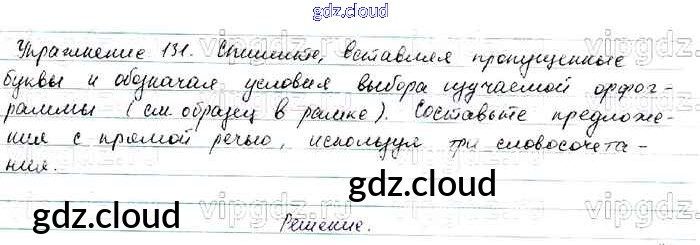 gdz.cloud
Упражнение 131. Спишите, вставляя пропущенные
буквы и обозначая условия выбора изучаемой орфог-
раммы (см. образец в рамке). Составьте предложе-
ния с прямой речью, используя три словосочета-
ния.
gdz.cloud
gdz.cloud gdz.cloud
Решение.